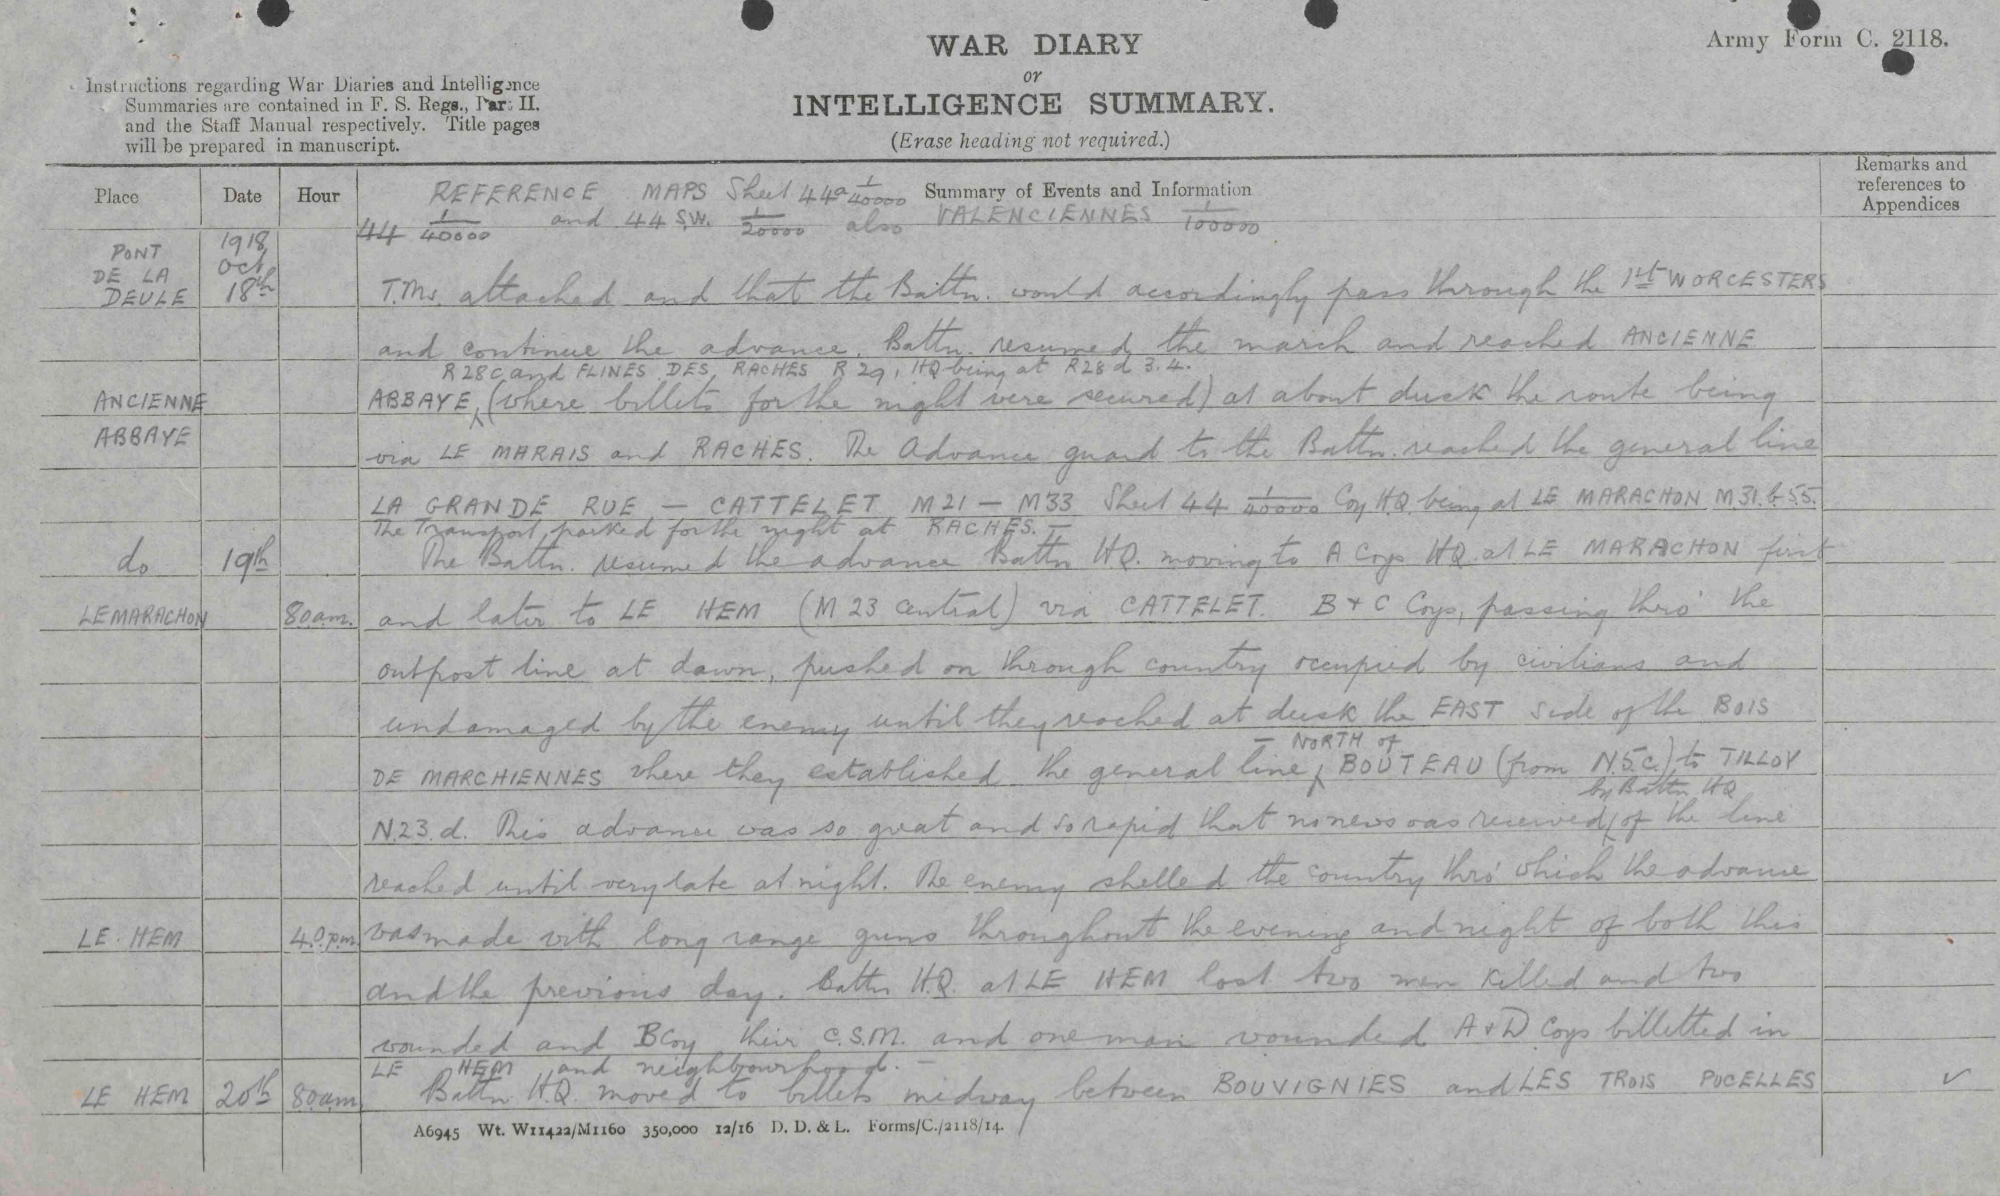 WAR DIARY
or
INTELLIGENCE SUMMARY.
(Erase heading not required.)
Army Form C. 2118.
Instructions regarding War Diaries and Intelligence
Summaries are contained in F. S. Regs., Part II.
and the Staff Manual respectively. Title pages
will be prepared in manuscript.
Place Date Hour Summary of Events and Information Remarks and references to Appendices
REFERENCE MAPS Sheet 44a 1/40000
44 1/40000 and 44 S.W. 1/20000 also VALENCIENNES 1/100000
PONT DE LA DEULE 1918 Oct 18th T.Ms. attached and that the Battn. would accordingly pass through the 1st WORCESTERS
and continue the advance. Battn. resumed the march and reached ANCIENNE
R28c and FLINES DES RACHES R29, HQ being at R28d 3.4.
ANCIENNE ABBAYE ABBAYE, (where billets for the night were secured) at about dusk the route being
via LE MARAIS and RACHES. The Advance guard to the Battn. reached the general line
LA GRANDE RUE — CATTELET M21 — M33 Sheet 44 1/40000 Coy H.Q. being at LE MARACHON M31.b.55.
The Transport parked for the night at RACHES. —
do 19th The Battn. resumed the advance Battn HQ. moving to A Coys HQ. at LE MARACHON first
LE MARACHON 8.0am. and later to LE HEM (M23 central) via CATTELET. B + C Coys, passing thro' the
outpost line at dawn, pushed on through country occupied by civilians and
undamaged by the enemy until they reached at dusk the EAST side of the BOIS
— NORTH of
DE MARCHIENNES where they established the general line BOUTEAU (from N.5.c.) to TILLOY
by Battn HQ
N.23.d. This advance was so great and so rapid that no news was received of the line
reached until very late at night. The enemy shelled the country thro' which the advance
LE HEM 4.0.p.m. was made with long range guns throughout the evening and night of both this
and the previous day. Battn H.Q. at LE HEM lost two men killed and two
wounded and B Coy their C.S.M. and one man wounded A + D Coys billetted in
LE HEM and neighbourhood. —
LE HEM 20th 8.0am Battn. H.Q. moved to billets midway between BOUVIGNIES and LES TROIS PUCELLES ✓
A6945 Wt. W11422/M1160 350,000 12/16 D. D. & L. Forms/C./2118/14.